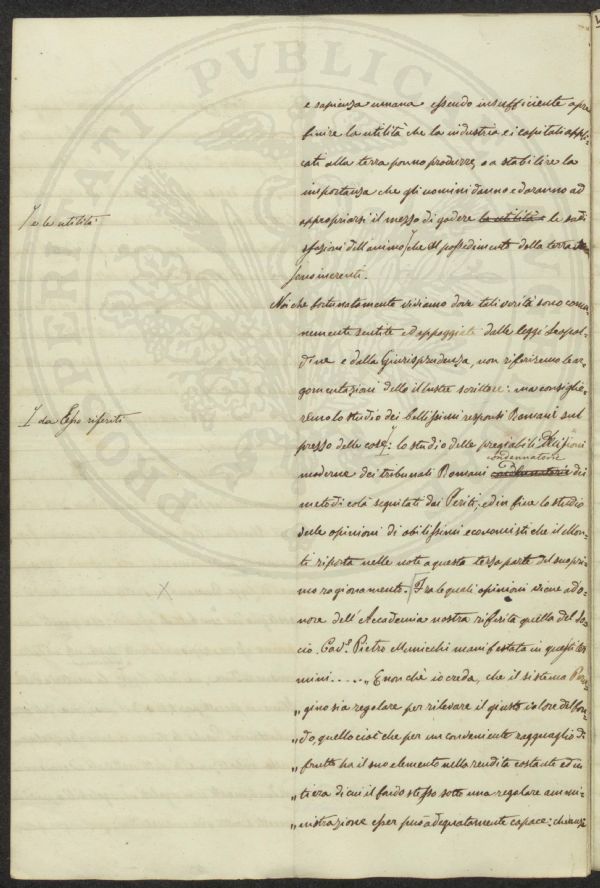 e sapienza umana essendo insufficiente a pre
finire la utilità che la industria e i capitali appli-
cati alla terra ponno produrre, o a stabilire la
importanza che gli uomini danno e daranno ad
appropriarsi il mezzo di godere la utilità e le sodi
sfazioni dell'animo, che al possedimento della terra
sono inerenti.
Γ e le utilità
Noi che fortunatamente viviamo dove tali verità sono comu-
nemente sentite ed appoggiate dalle leggi
e dalla Giurisprudenza, non riferiremo le ar-
gomentazioni dello illustre scrittore: ma consiglie-
remo lo studio dei bellissimi responsi Romani sul
prezzo delle cose Γ: lo studio delle pregiabili Decisioni
Γ da Esso riferiti
condennatorie
moderne dei tribunali Romani dei
metodi colà seguitati dai Periti; ed in fine lo studio
delle opinioni di abilissimi economisti che il Mon-
ti riporta nelle note a questa terza parte del suo pri
mo ragionamento. Fra le quali opinioni viene ad o-
nore dell'Accademia nostra riferita quella del So-
cio Cav.e Pietro Municchi manifestata in questi ter
mini ..... „ E non ch'è io creda, che il sistema
„ gino sia regolare per rilevare il giusto valore del fon-
„ do, quello cioè che per un conveniente ragguaglio di
„ frutto ha il suo elemento nella rendita costante ed in
„ tiera di cui il fondo stesso sotto una regolare ammi-
„ nistrazione esser può adequatamente capace: